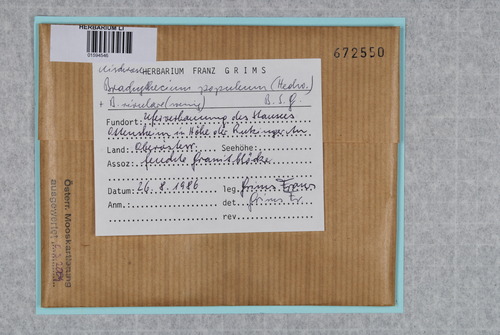 HERBARIUM LI
01594546
672550
HERBARIUM FRANZ GRIMS
Brachythecium populeum (Hedw.)
+ B. B.S.G.
Fundort: Uferverbauung des Stausees
Ottensheim in Höhe der
Land: Oberösterr. Seehöhe:
Assoz: feuchte Granitblöcke
Datum: 26.8.1986 leg. Grims Franz
Anm.: det. Grims Fr.
rev.
Österr. Mooskartierung
ausgewertet